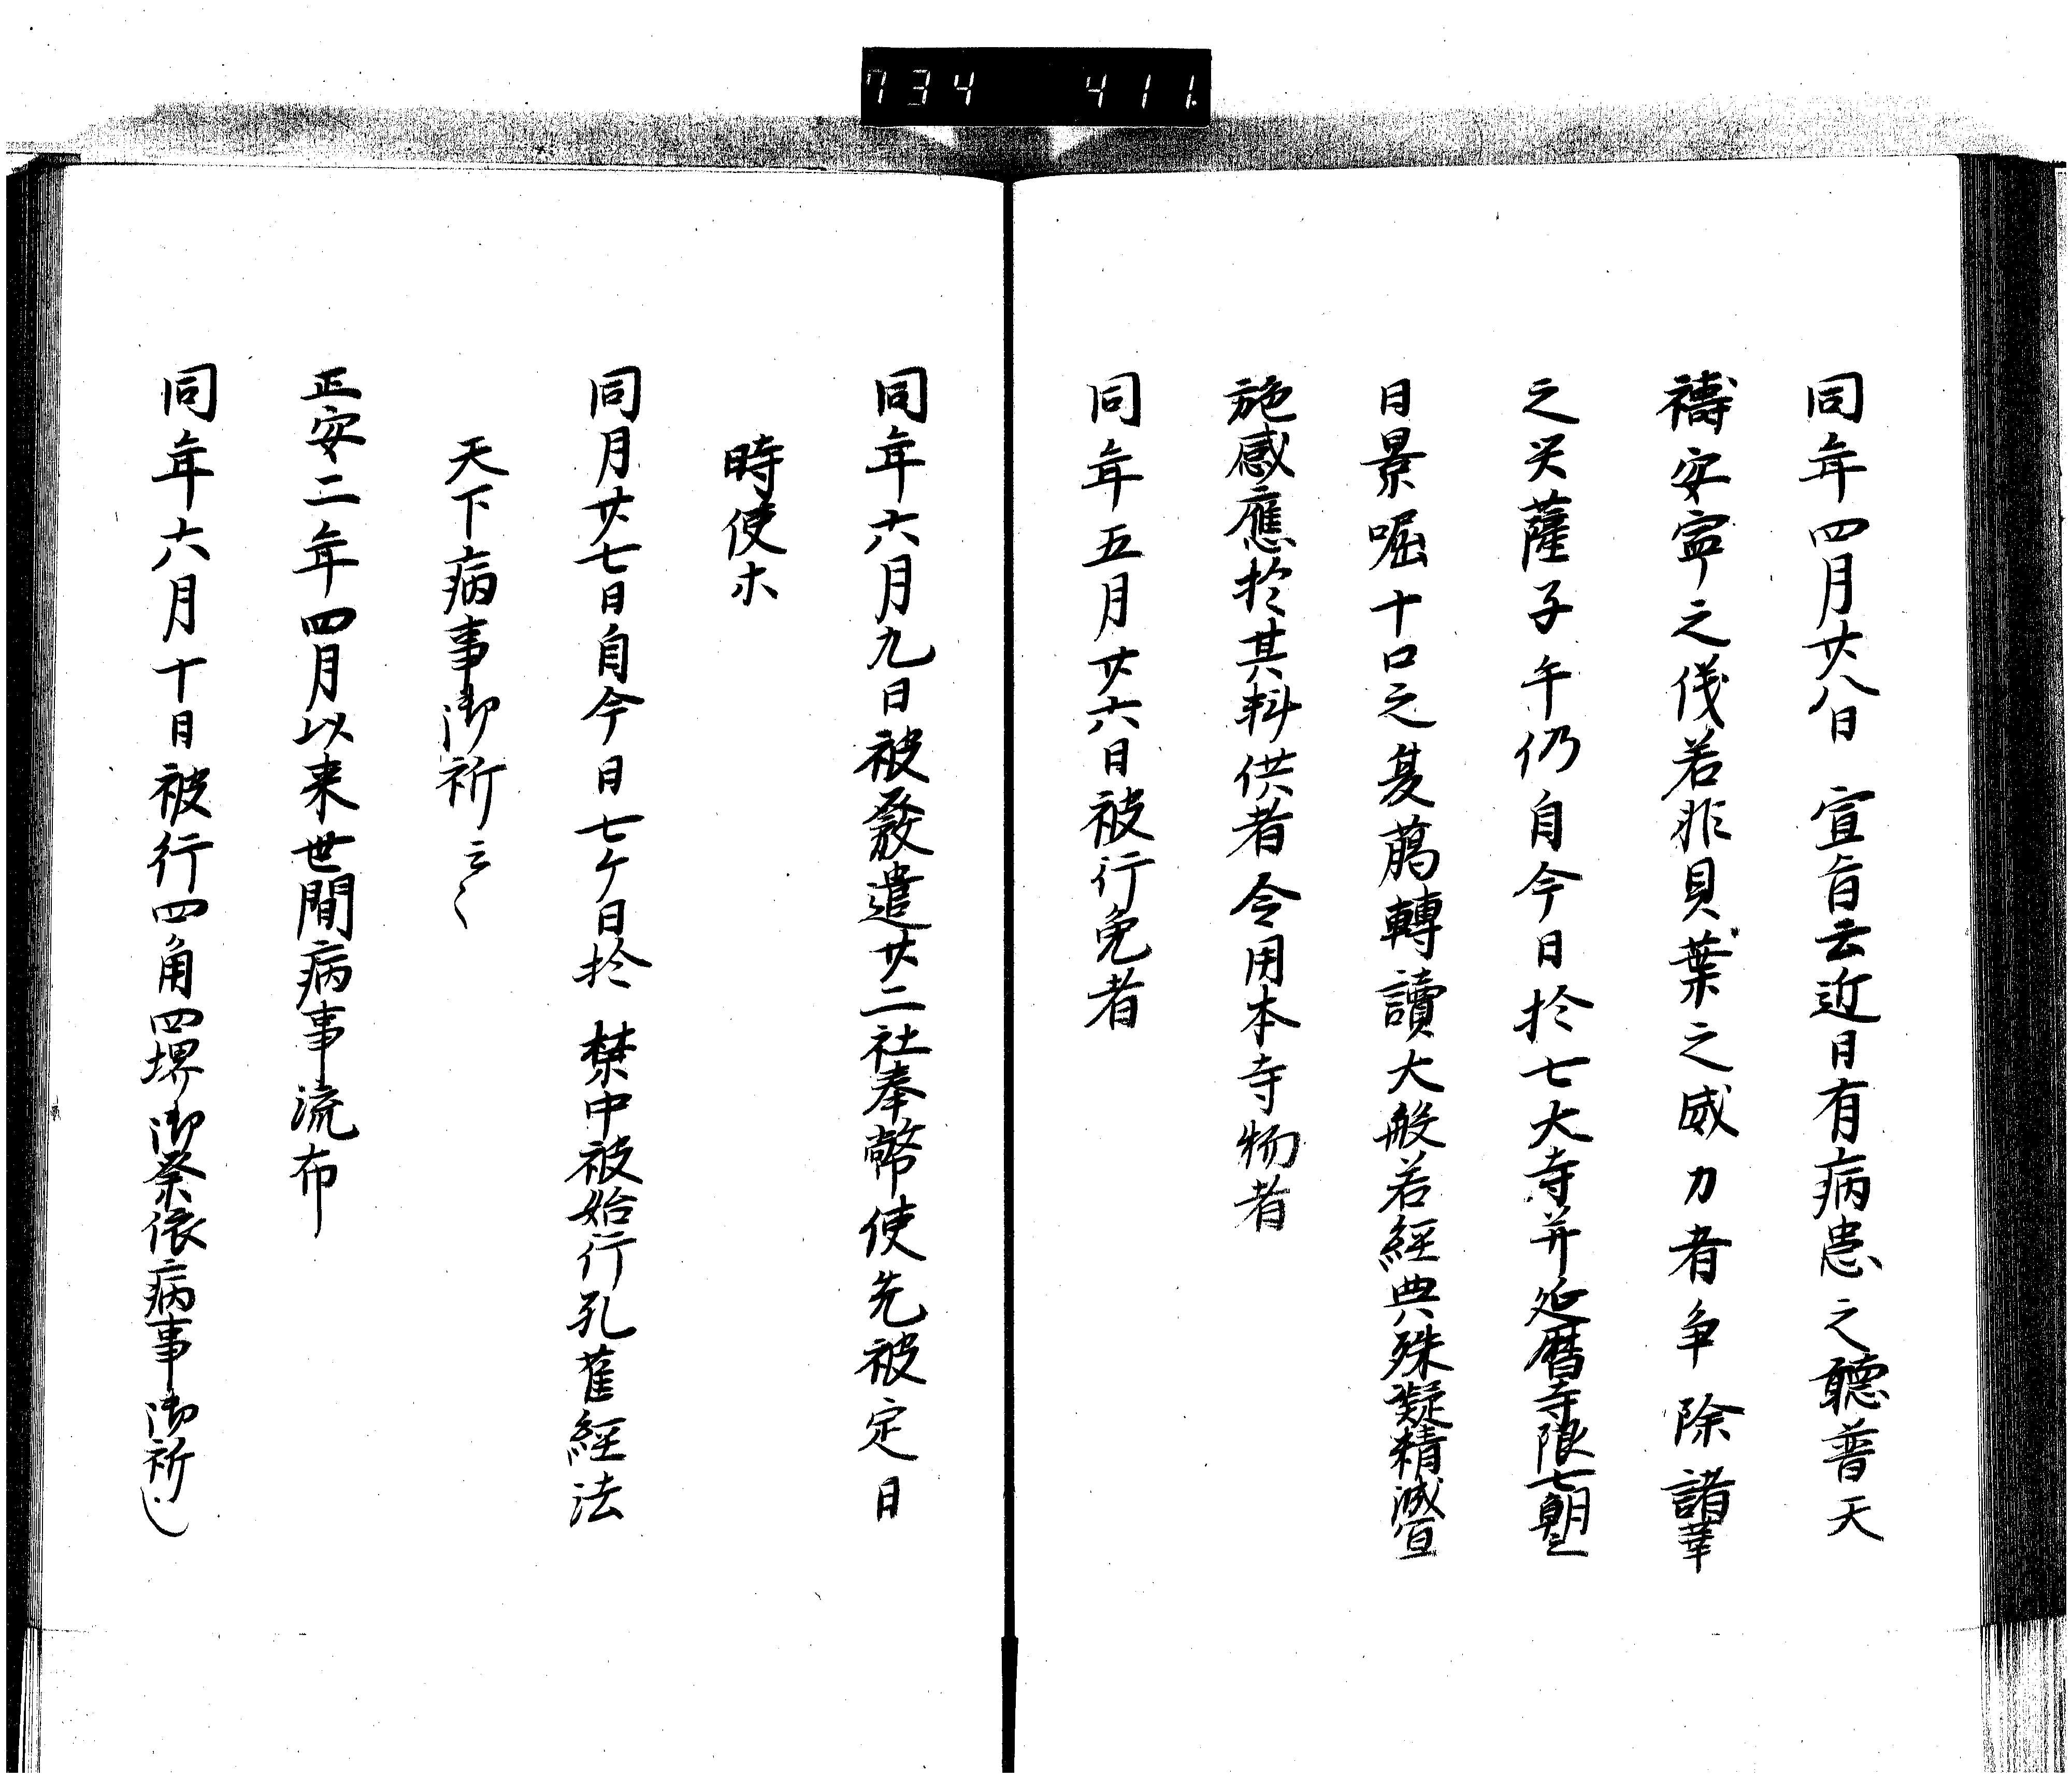 734 411
同年四月廿八日 宣旨云近日有病患之聴普天
祷安寧之儀若非貝葉之威力者争除諸華
之关薩子午仍自今日於七大寺并延暦寺限七朝之
日景啒十口之夏﨟轉讀大般若經典殊凝精誠宜
施感應於其料供者令用本寺物者
同年五月廿六日被行免者
同年六月九日被發遣廿二社奉幣使先被定日
時使ホ
同月廿七日自今日七ケ日於 禁中被始行孔雀經法
天下病事御祈云々
正安二年四月以来世間病事流布
同年六月十日被行四角四堺御祭依病事御祈也